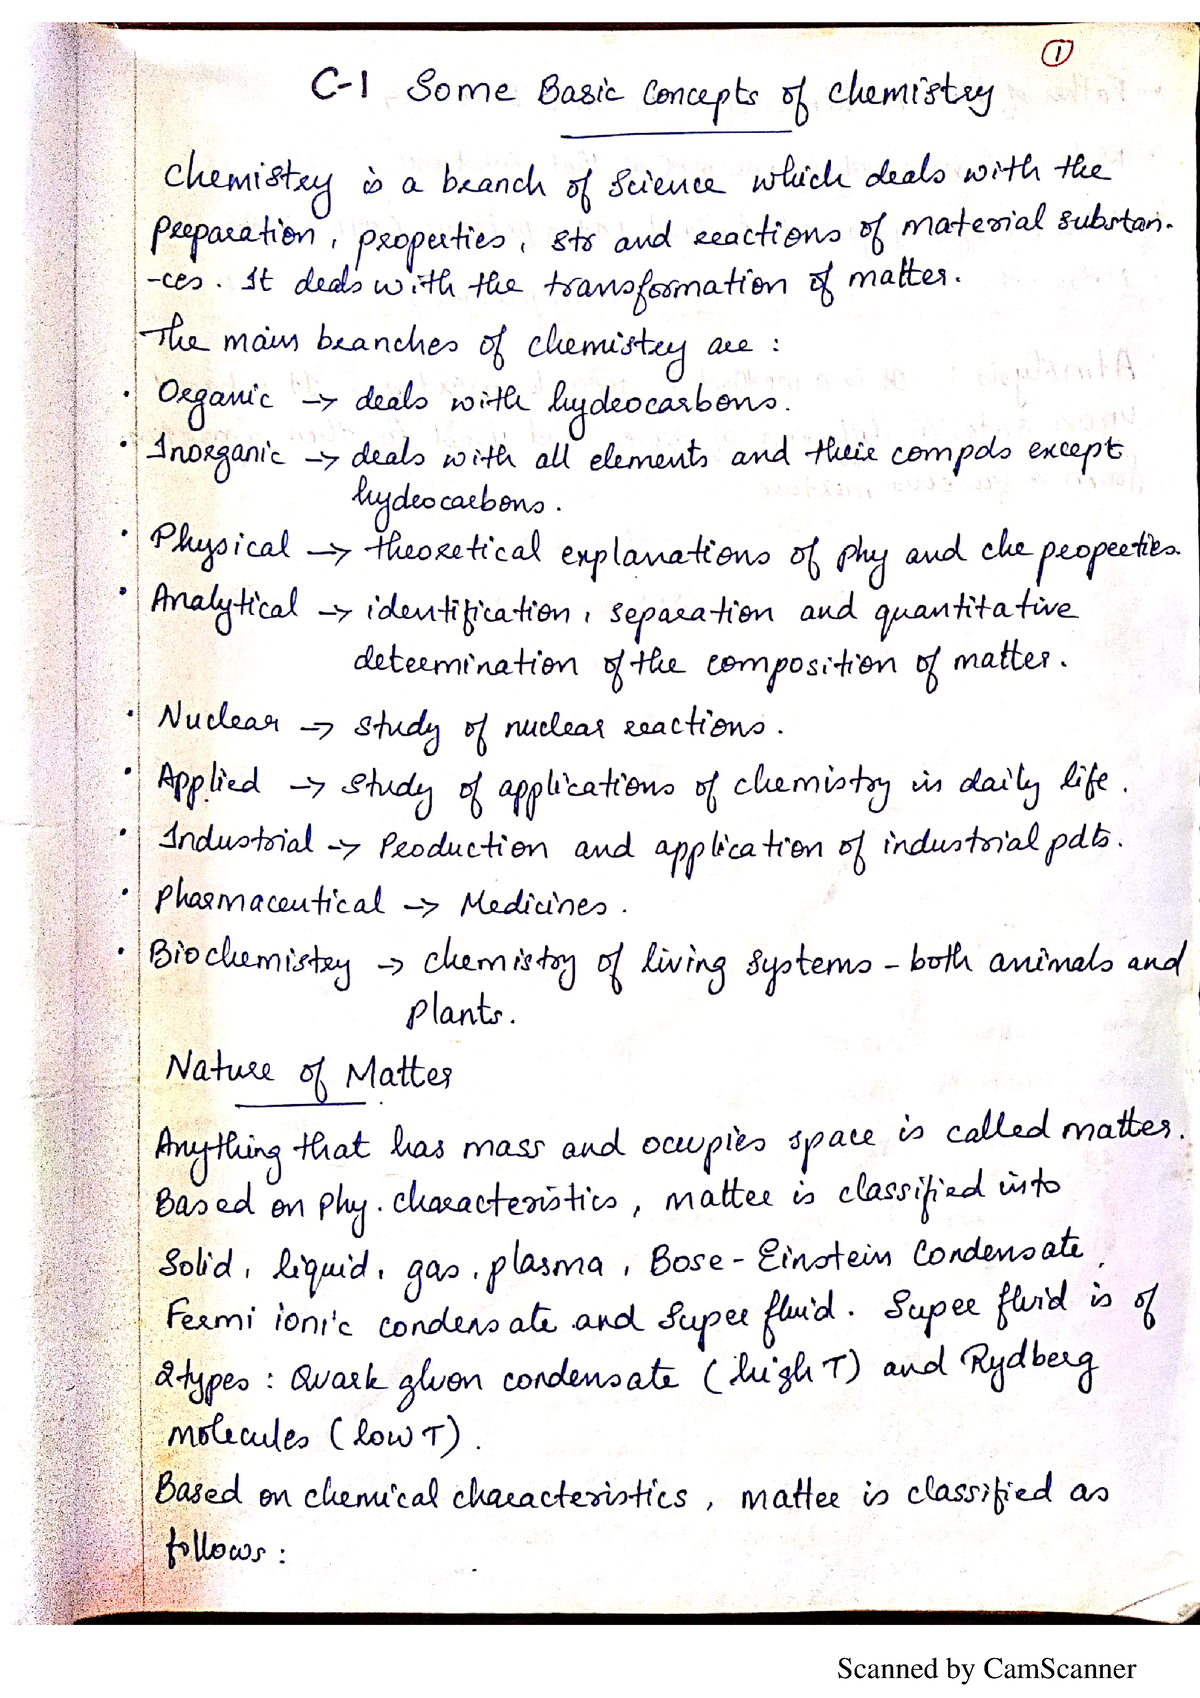 1
C-1 Some Basic Concepts of chemistry
chemistry is a branch of science which deals with the
preparation, properties, str and reactions of material substan-
-ces. It deals with the transformation of matter.
The main branches of chemistry are :
• Organic → deals with hydrocarbons.
• Inorganic → deals with all elements and their compds except
hydrocarbons.
• Physical → theoretical explanations of phy and che properties.
• Analytical → identification, separation and quantitative
determination of the composition of matter.
• Nuclear → study of nuclear reactions.
• Applied → study of applications of chemistry in daily life.
• Industrial → Production and application of industrial pdts.
• Pharmaceutical → Medicines.
• Biochemistry → chemistry of living systems - both animals and
plants.
Nature of Matter
Anything that has mass and occupies space is called matter.
Based on phy. characteristics, matter is classified into
Solid, liquid, gas, plasma, Bose-Einstein Condensate,
Fermi ionic condensate and Super fluid. Super fluid is of
2 types : Quark gluon condensate (high T) and Rydberg
molecules (low T).
Based on chemical characteristics, matter is classified as
follows :
Scanned by CamScanner